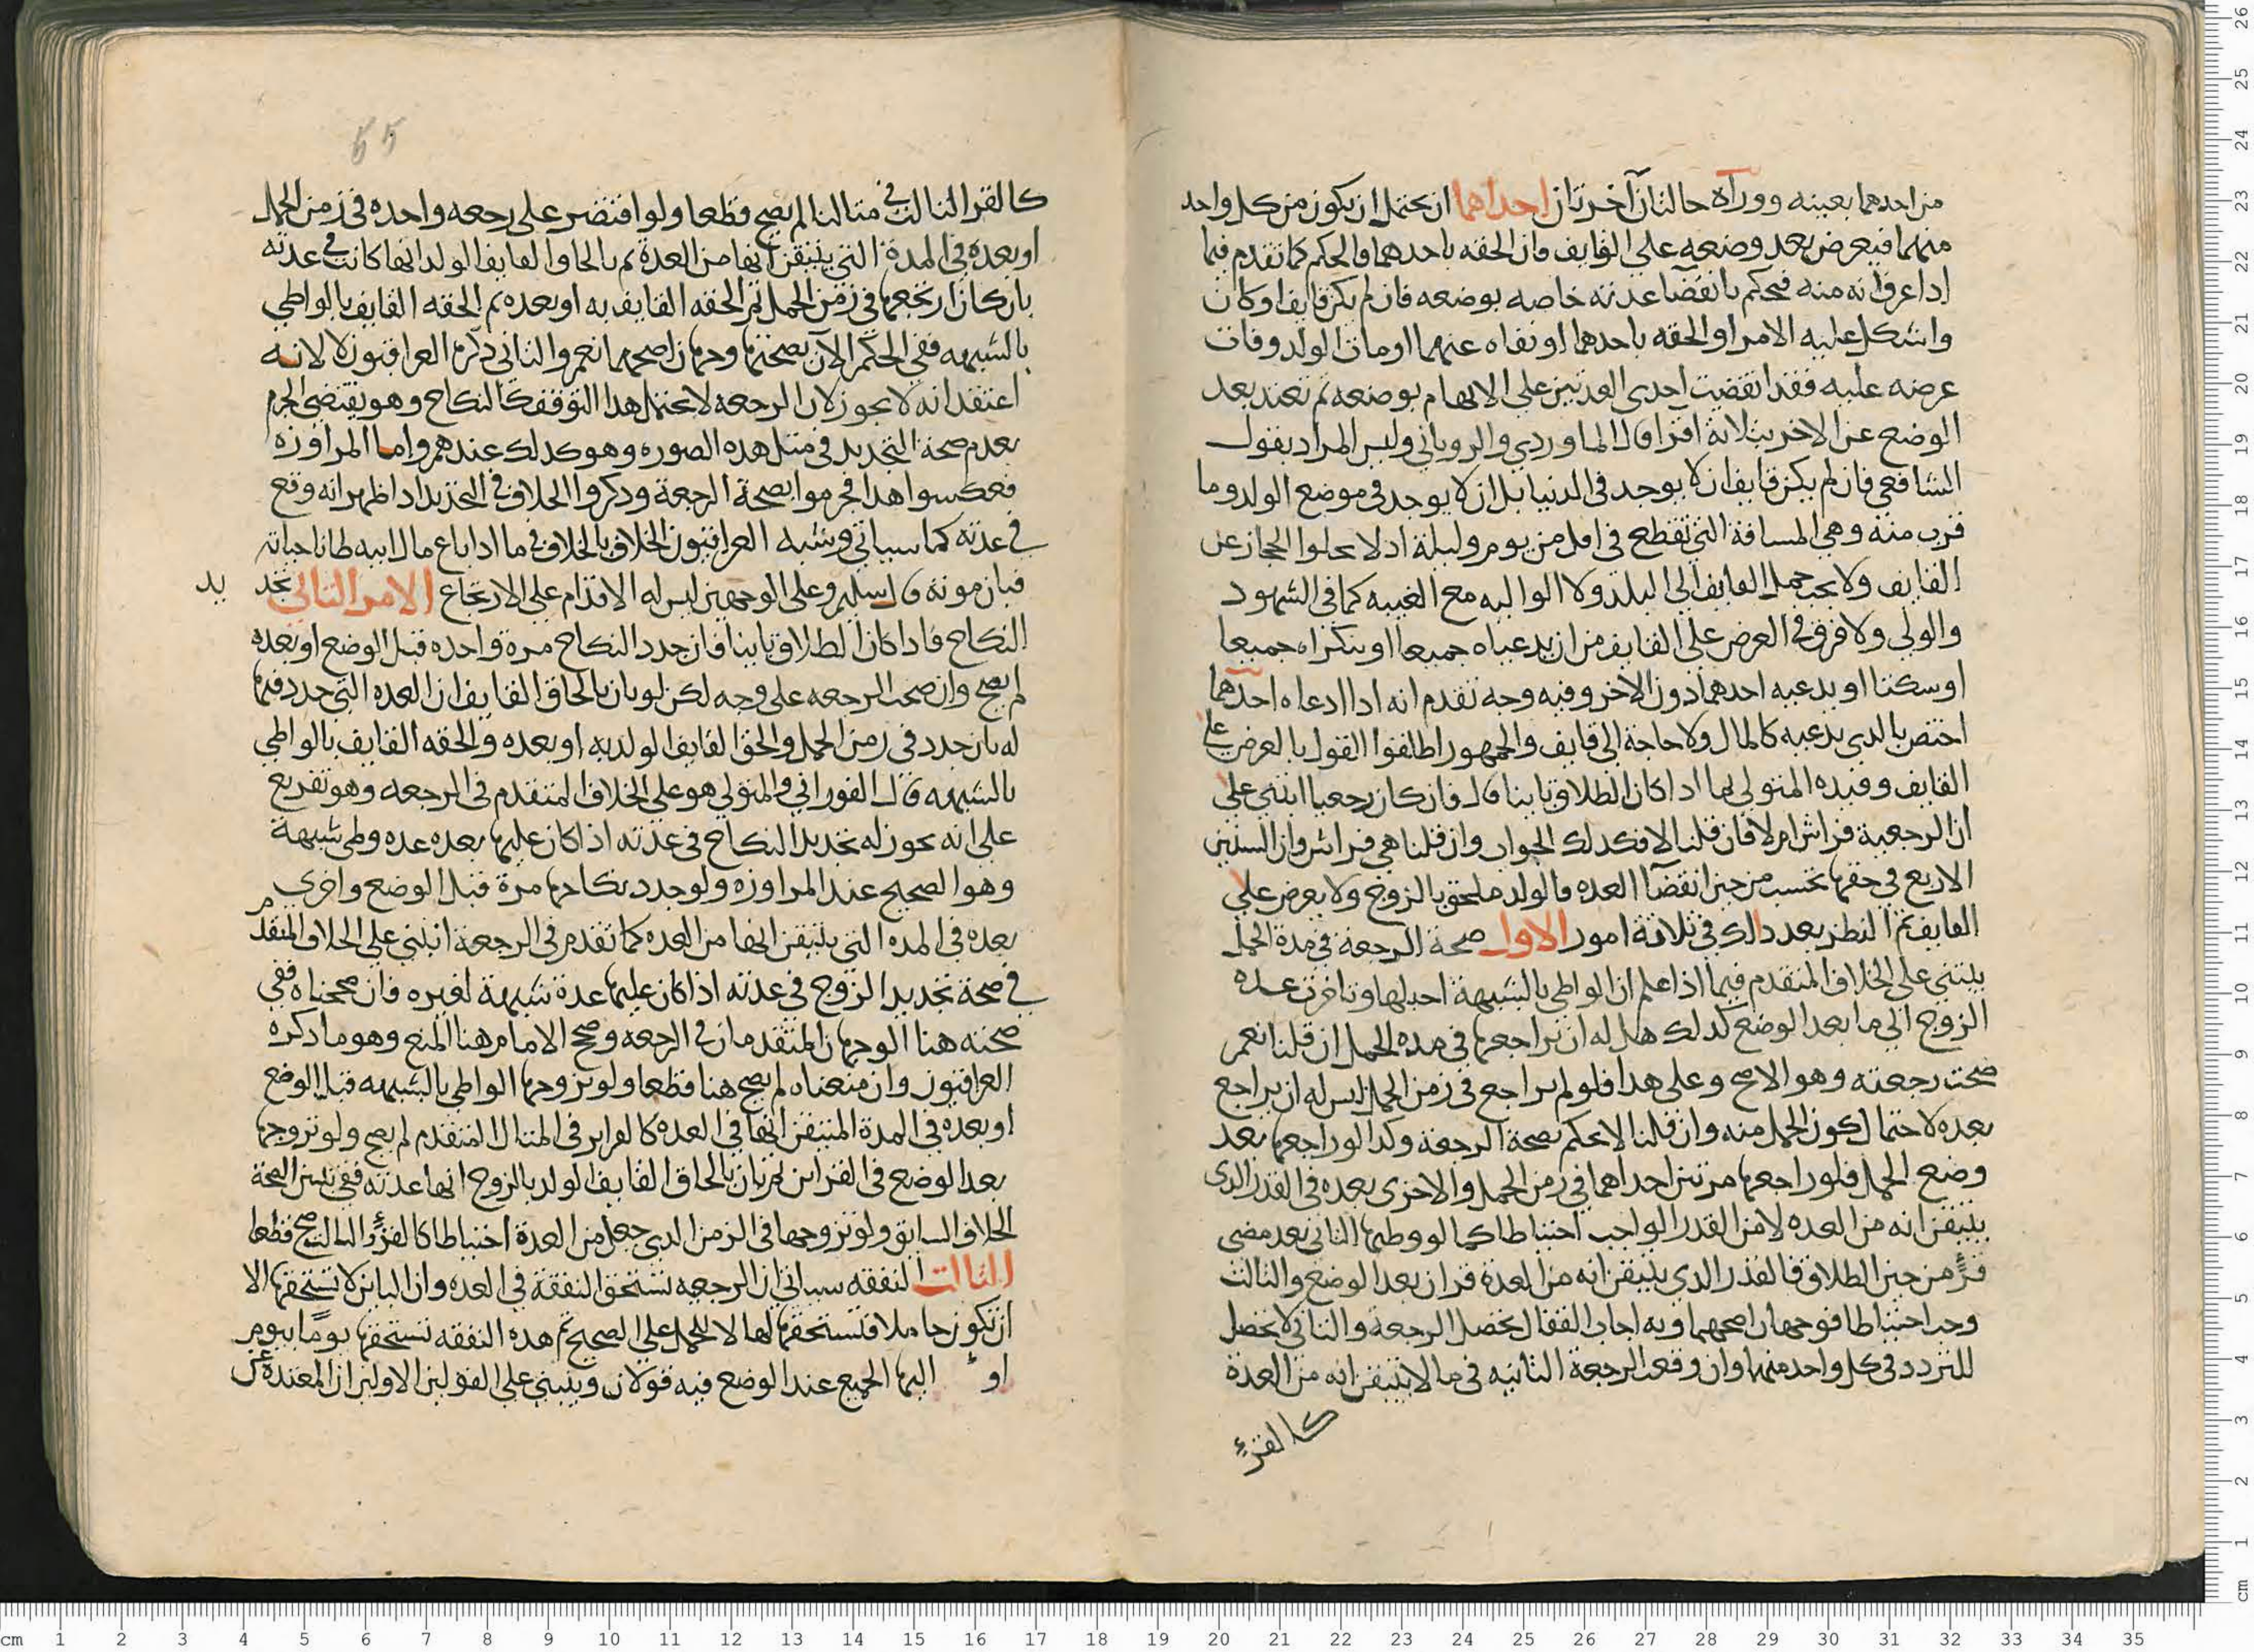 من احدهما بعينه ووراه حالتان آخرتان احداهما ان يحتمل ان يكون من كل واحد
منهما فيعرض بعد وضعه على القايف فان الحقه باحدهما فالحكم كما تقدم فيما
اذا عرف انه منه فيحكم بانقضا عدته خاصه بوضعه فان لم يكن قايف او كان
واشكل عليه الامر او الحقه باحدهما او نفاه عنهما او مات الولد وفات
عرضه عليه فقد انقضت احدى العدتين على الابهام بوضعه ثم تعتد بعد
الوضع عن الاخر بثلاثة اقرا قال الماوردي والروياني وليس المراد بقول
الشافعي فان لم يكن قايف ان لا يوجد في الدنيا بل ان لا يوجد في موضع الولد وما
قرب منه وهي المسافة التي تقطع في اقل من يوم وليلة اذ لا يخلوا الحجاز عن
القايف ولا يجب حمل القايف الى البلد ولا الواليه مع الغيبه كما في الشهود
والولي ولا فرق في العرض على القايف من ان يدعياه جميعا او ينكراه جميعا
او سكتا او يدعيه احدهما دون الاخر وفيه وجه تقدم انه اذا ادعاه احدهما
اختص بالذي يدعيه كالمال ولا حاجة الى قايف والجمهور اطلقوا القول بالعرض على
القايف وقيده المتولي بما اذا كان الطلاق باينا قال فان كان رجعيا انبنى على
ان الرجعية فراش ام لا فان قلنا لا فكذلك الجواب وان قلنا هي فراش وان السنين
الاربع في حقها تحسب من حين انقضا العده فالولد ملحق بالزوج ولا يعرض على
القايف ثم النظر بعد ذلك في ثلاثة امور الاول صحة الرجعة في مدة الحمل
يبتني على الخلاف المتقدم فيما اذا علم ان الواطي بالشبهة احبلها وتاخرت عده
الزوج الى ما بعد الوضع كذلك هل له ان يراجعها في مده الحمل ان قلنا نعم
صحت رجعته وهو الاصح وعلى هذا فلو لم يراجع في زمن الحمل ليس له ان يراجع
بعده لاحتمال كون الحمل منه وان قلنا لا لا يحكم بصحة الرجعة وكذا لو راجعها بعد
وضع الحمل فلو راجعها مرتين احداهما في زمن الحمل والاخرى بعده في القدر الذي
يتيقن انه من العده لا من القدر الواجب احتياطا كما لو وطيها الثاني بعد مضي
قرء من حين الطلاق فالقدر الذي يتيقن انه من العدة قران بعد الوضع والثالث
وجب احتياطا فوجهان اصحهما وبه اجاب القفال تحصل الرجعة والثاني لا تحصل
للتردد في كل واحد منهما وان وقعت الرجعة الثانيه في ما لا يتيقن انه من العدة
كالقرء
55
كالقرا الثالث في مثالنا لم يصح قطعا ولو اقتصر على رجعه واحده في زمن الحمل
او بعده في المدة التي يتيقن انها من العدة ثم بالحاق القايف الولد انها كانت في عدته
بان كان ارتجعها في زمن الحمل ثم الحقه القايف به او بعده ثم الحقه القايف بالواطي
بالشبهه ففي الحكم الآن بصحتها وجهان اصحهما نعم والثاني ذكره العراقيون لا لانه
اعتقد انه لا يجوز لان الرجعه لا تحتمل هذا التوقف كالنكاح وهو يقتضي الجزم
بعدم صحة التجديد في مثل هذه الصوره وهو كذلك عندهم واما المراوزه
فعكسوا هذا فجزموا بصحة الرجعة وذكروا الخلاف في التجديد اذا ظهر انه وقع
في عدته كما سياتي وشبه العراقيون الخلاف بالخلاف في ما اذا باع مال ابيه ظانا حياته
فبان موته قال سليم وعلى الوجهين ليس له الاقدام على الارتجاع الامر الثاني تجد يد
النكاح فاذا كان الطلاق باينا فان جدد النكاح مرة واحده قبل الوضع او بعده
لم يصح وان صحت الرجعه على وجه لكن لو بان بالحاق القايف ان العده التي جدد فيها
له بان جدد في زمن الحمل والحق القايف الولد به او بعده والحقه القايف بالواطي
بالشبهه قال الفوراني والمتولي هو على الخلاف المتقدم في الرجعه وهو تفريع
على انه يجوز له تجديد النكاح في عدته اذا كان عليها بعده عده وطي شبهة
وهو الصحيح عند المراوزه ولو جدد نكاحها مرة قبل الوضع واخرى
بعده في المده التي يتيقن انها من العده كما تقدم في الرجعة انبنى على الخلاف المتقدم
في صحة تجديد الزوج في عدته اذا كان عليها عدة شبهة لغيره فان صححناه ففي
صحته هنا الوجهان المتقدمان في الرجعه وصحح الامام هنا المنع وهو ما ذكره
العراقيون وان منعناه لم يصح هنا قطعا ولو تزوجها الواطي بالشبهه قبل الوضع
او بعده في المدة المتيقن انها في العده كالقراين في المثال المتقدم لم يصح ولو تزوجها
بعد الوضع في القراين ثم بان بالحاق القايف الولد بالزوج انها عدته ففي تبين الصحة
الخلاف السابق ولو تزوجها في الزمن الذي جعل من العدة احتياطا كالقرء الثالث صح قطعا
الثالث النفقه سياتي ان الرجعيه تستحق النفقة في العده وان الباين لا تستحقها الا
ان تكون حاملا فتستحقها لها لا للحمل على الصحيح ثم هذه النفقه تستحقها يوما بيوم
او اليها الجميع عند الوضع فيه قولان وينبني على القولين الاولين ان المعتدة عن